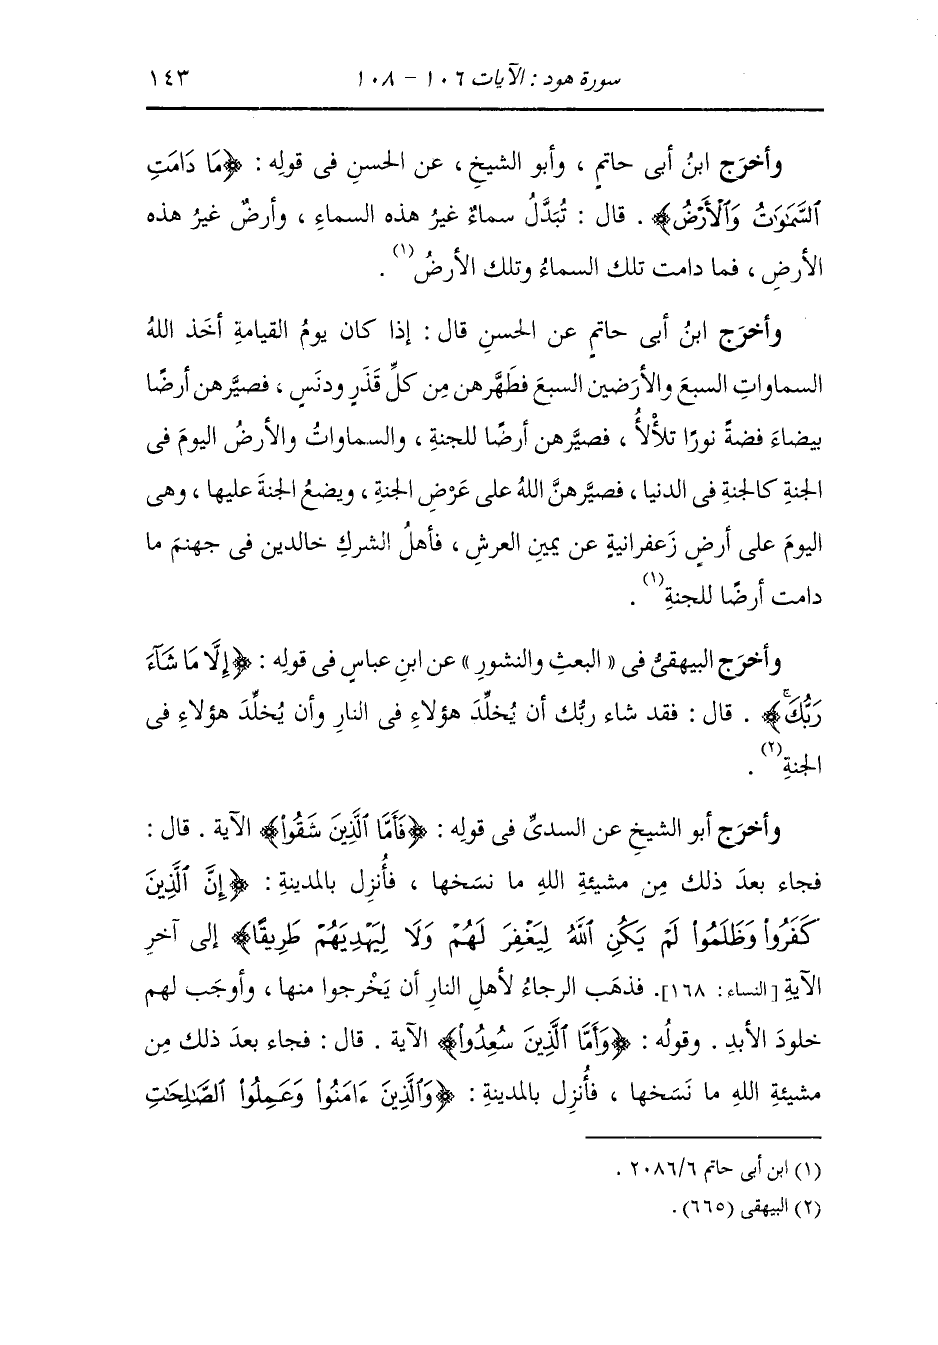 سورة هود : الآيات ١٠٦ - ١٠٨ ١٤٣
وأخرَج ابنُ أبى حاتمٍ ، وأبو الشيخِ ، عن الحسنِ فى قولِه : ﴿مَا دَامَتِ
ٱلسَّمَٰوَٰتُ وَٱلْأَرْضُ﴾ . قال : تُبَدَّلُ سماءٌ غيرُ هذه السماءِ ، وأرضٌ غيرُ هذه
الأرضِ ، فما دامت تلك السماءُ وتلك الأرضُ(١) .
وأخرَج ابنُ أبى حاتمٍ عن الحسنِ قال : إذا كان يومُ القيامةِ أخَذ اللهُ
السماواتِ السبعَ والأرَضين السبعَ فطَهَّرهن مِن كلِّ قَذَرٍ ودنَسٍ ، فصيَّرهن أرضًا
بيضاءَ فضةً نورًا تلأْلأُ ، فصيَّرهن أرضًا للجنةِ ، والسماواتُ والأرضُ اليومَ فى
الجنةِ كالجنةِ فى الدنيا ، فصيَّرهنَّ اللهُ على عَرْضِ الجنةِ ، ويضعُ الجنةَ عليها ، وهى
اليومَ على أرضٍ زَعفرانيةٍ عن يمينِ العرشِ ، فأهلُ الشركِ خالدين فى جهنمَ ما
دامت أرضًا للجنةِ(١) .
وأخرَج البيهقىُّ فى « البعثِ والنشورِ » عن ابنِ عباسٍ فى قولِه : ﴿إِلَّا مَا شَآءَ
رَبُّكَۚ﴾ . قال : فقد شاء ربُّك أن يُخلِّدَ هؤلاءِ فى النارِ وأن يُخلِّدَ هؤلاءِ فى
الجنةِ(٢) .
وأخرَج أبو الشيخِ عن السدىِّ فى قولِه : ﴿فَأَمَّا ٱلَّذِينَ شَقُوا۟﴾ الآية . قال :
فجاء بعدَ ذلك مِن مشيئةِ اللهِ ما نسَخها ، فأُنزِل بالمدينةِ : ﴿إِنَّ ٱلَّذِينَ
كَفَرُوا۟ وَظَلَمُوا۟ لَمْ يَكُنِ ٱللَّهُ لِيَغْفِرَ لَهُمْ وَلَا لِيَهْدِيَهُمْ طَرِيقًا﴾ إلى آخرِ
الآيةِ [النساء : ١٦٨]. فذهَب الرجاءُ لأهلِ النارِ أن يَخْرجوا منها ، وأوجَب لهم
خلودَ الأبدِ . وقولُه : ﴿وَأَمَّا ٱلَّذِينَ سُعِدُوا۟﴾ الآية . قال : فجاء بعدَ ذلك مِن
مشيئةِ اللهِ ما نَسَخها ، فأُنزِل بالمدينةِ : ﴿وَٱلَّذِينَ ءَامَنُوا۟ وَعَمِلُوا۟ ٱلصَّٰلِحَٰتِ
(١) ابن أبى حاتم ٢٠٨٦/٦ .
(٢) البيهقى (٦٦٥) .